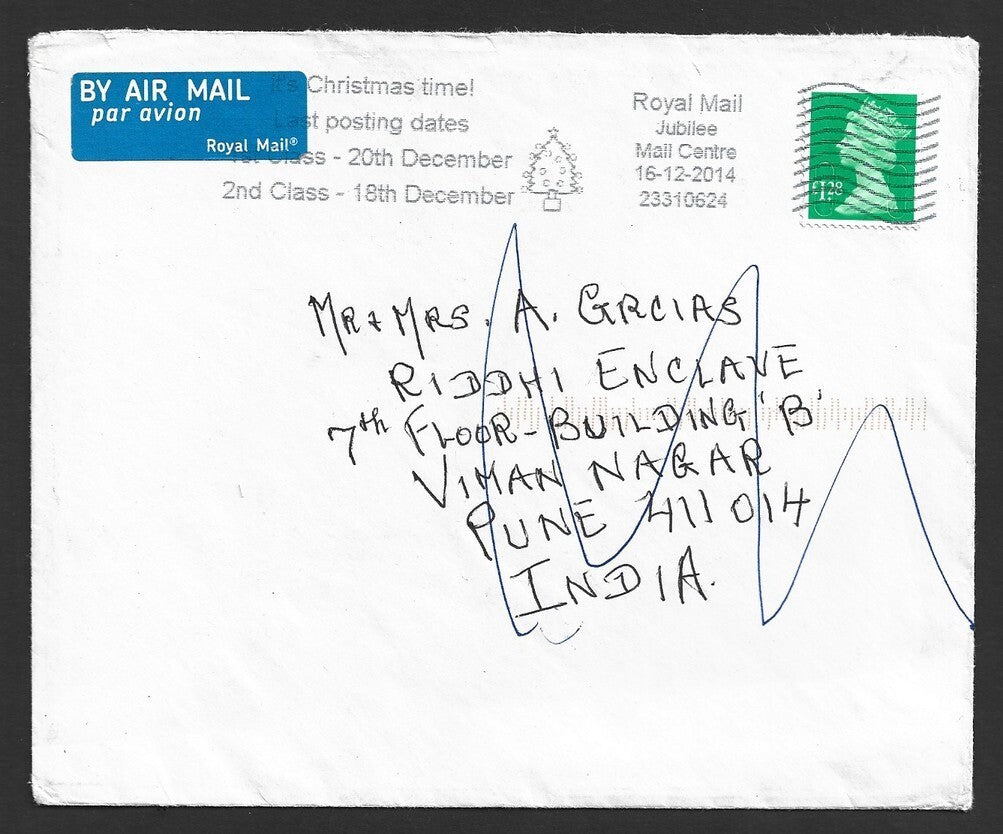 BY AIR MAIL
par avion
Royal Mail®
It's Christmas time!
Last posting dates
1st Class - 20th December
2nd Class - 18th December
Royal Mail
Jubilee
Mail Centre
16-12-2014
23310624
£1.28
MR & MRS. A. GRCIAS
RIDDHI ENCLAVE
7th FLOOR - BUILDING 'B'
VIMAN NAGAR
PUNE 411 014
INDIA.